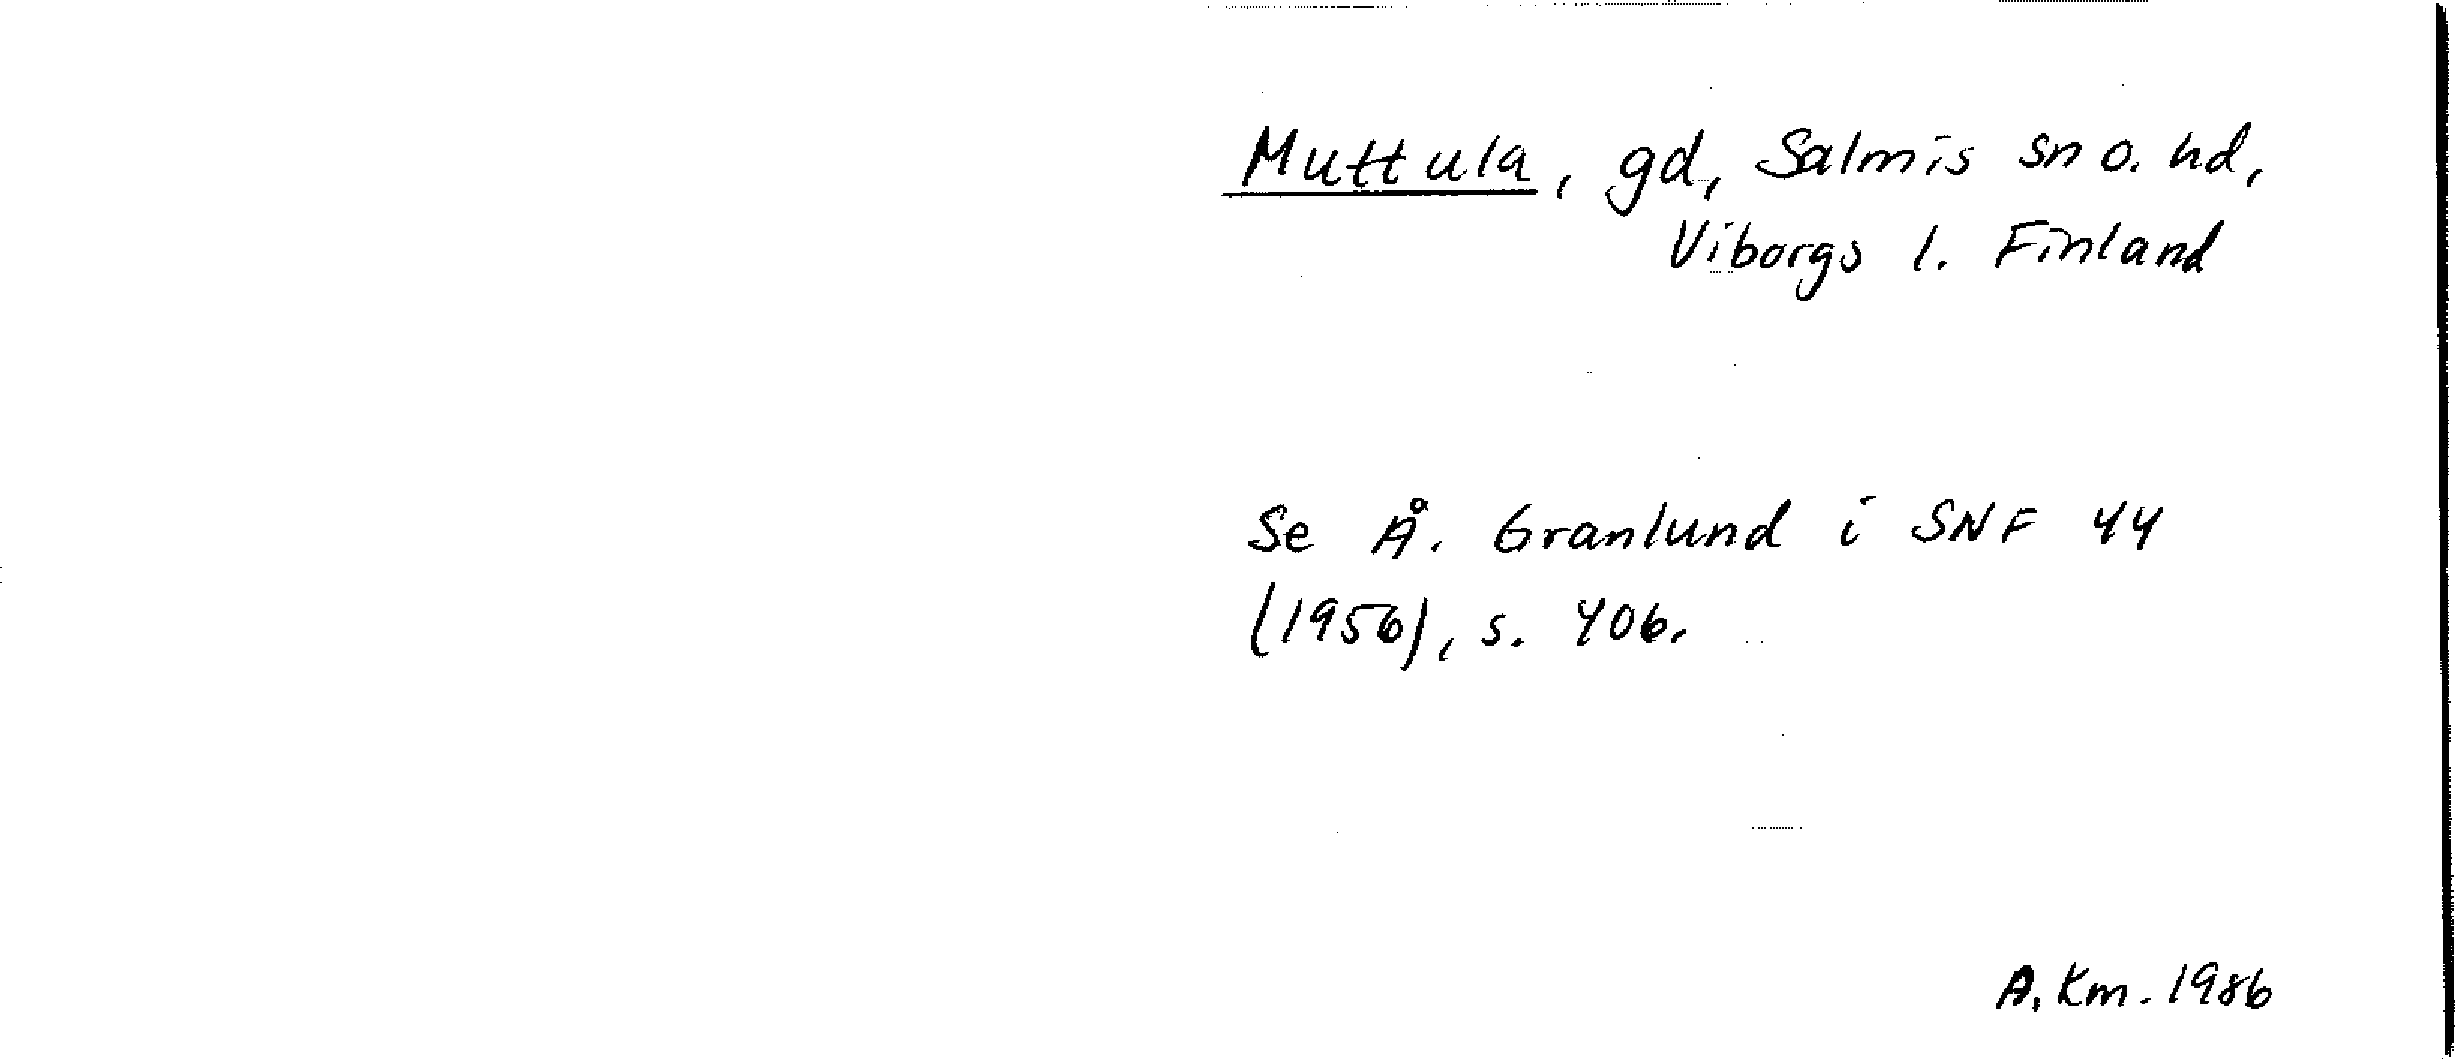 Muttula, gd, Salmis sn o. hd,
Viborgs l. Finland
Se Å. Granlund i SNF 44
(1956), s. 406.
A. Km. 1986